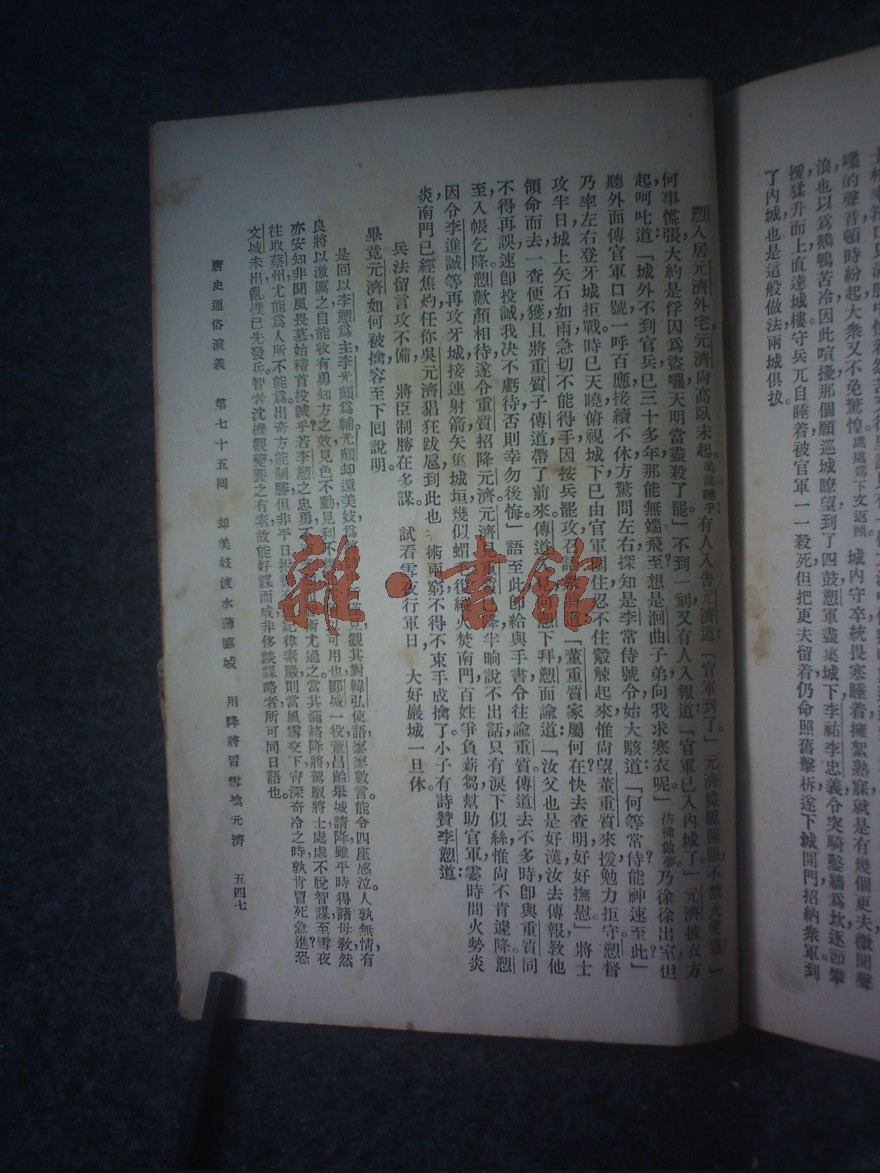 嘈的聲音頓時紛起大衆又不免驚惶處處爲下文返照城內守卒統畏寒睡着擁絮熟寐就是有幾個更夫微聞聲
浪也以爲鵝鴨苦冷因此喧擾那個願巡城瞭望到了四鼓愬軍盡集城下李祐李忠義令突騎鑿牆爲坎逐節攀
援猱升而上直達城樓守兵兀自睡着被官軍一一殺死但把更夫留着仍命照舊擊柝遂下城開門招納衆軍到
了內城也是這般做法兩城俱拔。
愬入居元濟外宅元濟尙高臥未起。有人入告元濟道：「官軍到了」元濟朦朧開眼不禁大笑道：「
何事慌張大約是俘囚爲盜囉天明當盡殺了罷」不到一刻又有人入報道「官軍已入內城了」元濟披衣方
起呵叱道：「城外不到官兵已三十多年那能無端飛至想是洄曲子弟向我求寒衣呢」乃徐徐出室但
聽外面傳官軍口號一呼百應接續不休方驚問左右探知是李常侍號令始大駭道：「何等常侍能神速至此？」
乃率左右登牙城拒戰時已天曉俯視城下已由官軍圍住忍不住觳觫起來惟尙望董重質來援勉力拒守愬督
攻半日城上矢石如雨急切不能得手因按兵罷攻召語道：「董重質家屬何在快去查明好好撫慰」將士
領命而去一查便獲且將重質子傳道帶了前來傳道下拜愬面諭道：「汝父也是好漢汝去傳報敎他
不得再誤速卽投誠我决不虧待否則幸勿後悔」語至此卽給與手書令往諭重質。傳道去不多時卽與重質同
至入帳乞降愬歡顏相待遂令重質招降元濟元濟半晌說不出話只有淚下似絲惟尙不肯遽降愬
因令李進誠等再攻牙城接連射箭矢集城垣幾似蝟毛火焚南門百姓爭負薪芻幫助官軍霎時間火勢炎
炎南門已經焦灼任你吳元濟猖狂跋扈到此也術兩窮不得不束手成擒了小子有詩贊李愬道：
兵法留言攻不備　將臣制勝在多謀。　試看雪夜行軍日　大好嚴城一旦休。
畢竟元濟如何被擒容至下回說明。
是回以李愬爲主李光顏爲輔光顏却還美妓觀其對韓弘使語寥寥數言能令四座感泣。人孰無情有
良將以激厲之自能收有勇知方之效見色不動見利不可用也郾城一役董昌齡舉城請降雖平時得諸母敎然
亦安知非聞風畏慕始稽首投誠乎？若李愬之忠勇不尤過之當其籠絡降將駕馭將士處處不脫智謀至雪夜
往取蔡州尤能爲人所不能爲出奇方能制勝但非平日紀律素嚴則當風雪交下宵深奇冷之時孰肯冒死急進恐
文城未出亂機已先發兵。智者沈機觀變養之有素故能好謀而成非侈談謀略者所可同日語也。
唐史通俗演義　第七十五回　却美妓渡水薄郾城　用降將冒雪擒元濟　五四七
雜·書館